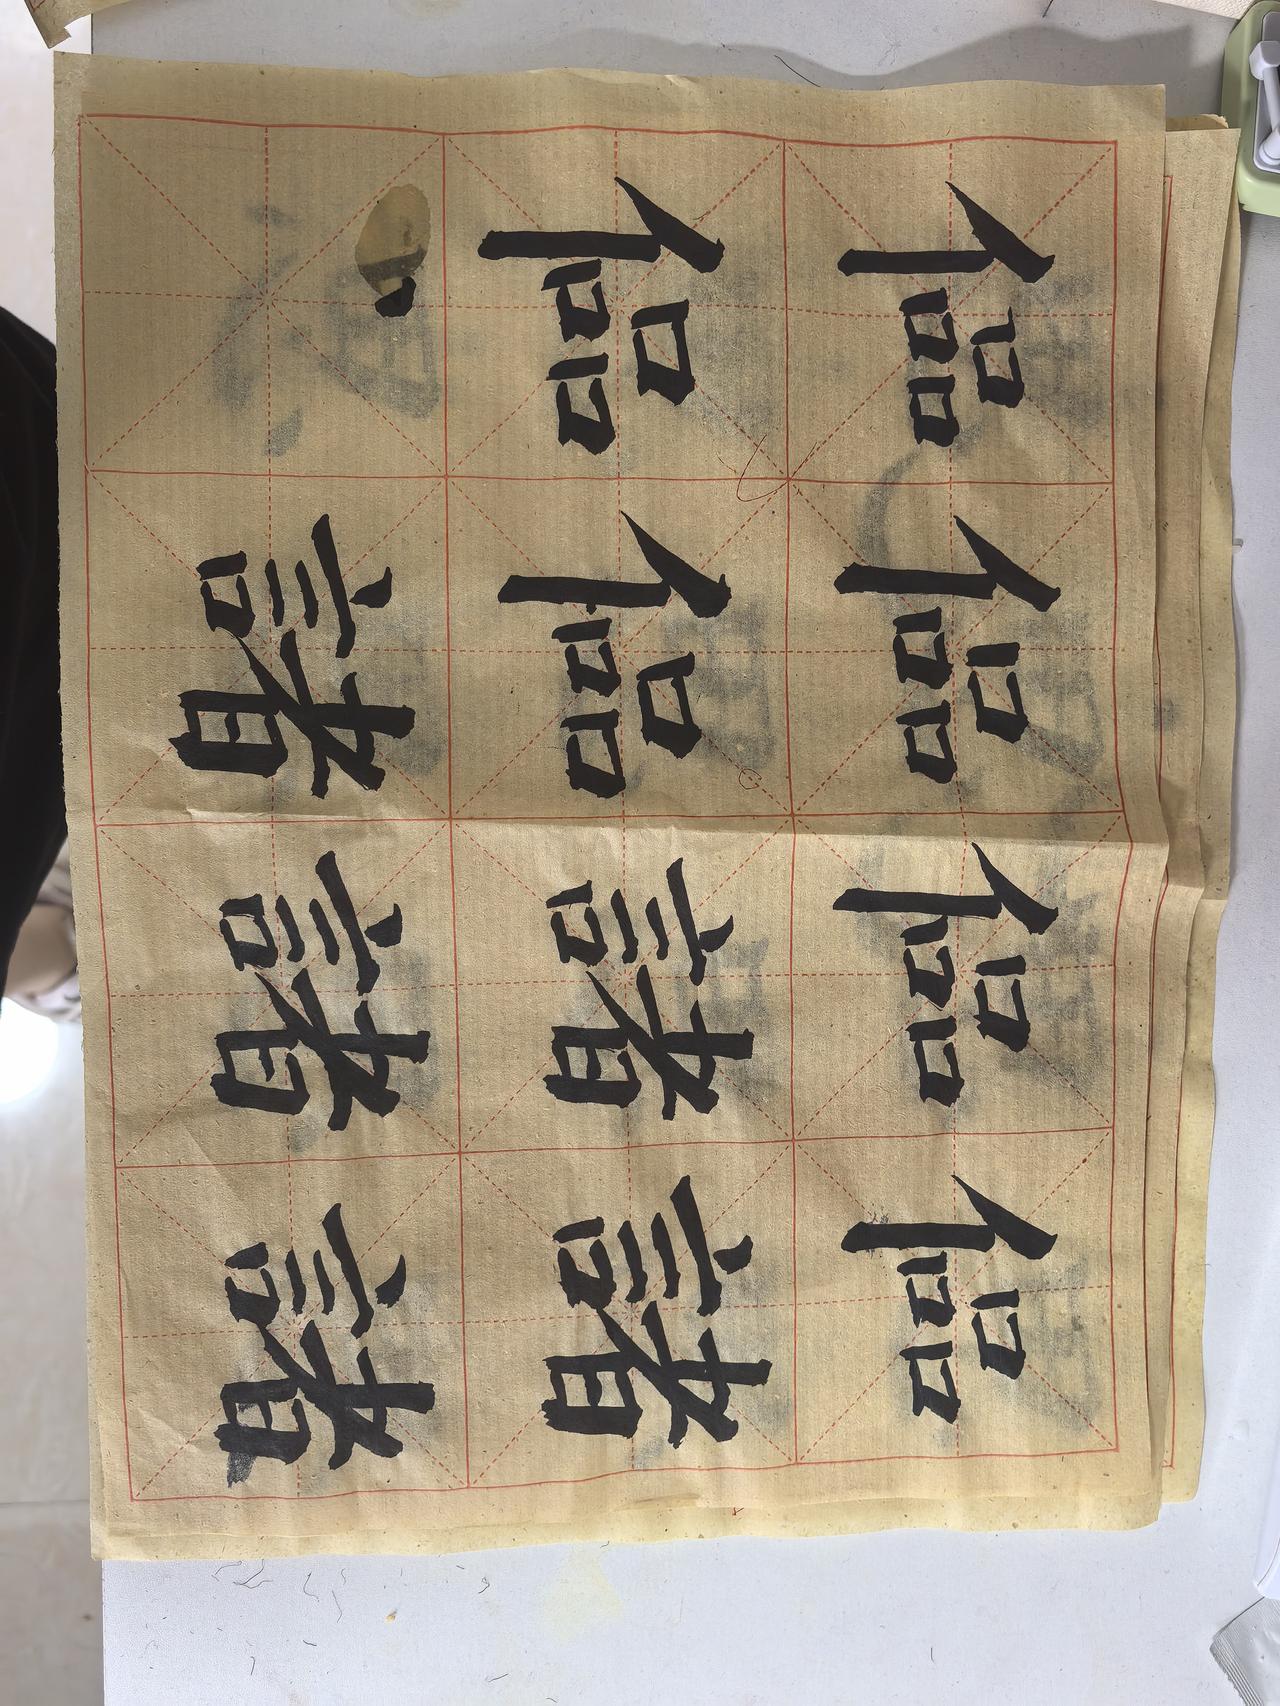 偘偘偘偘
偘偘諸諸
諸諸諸